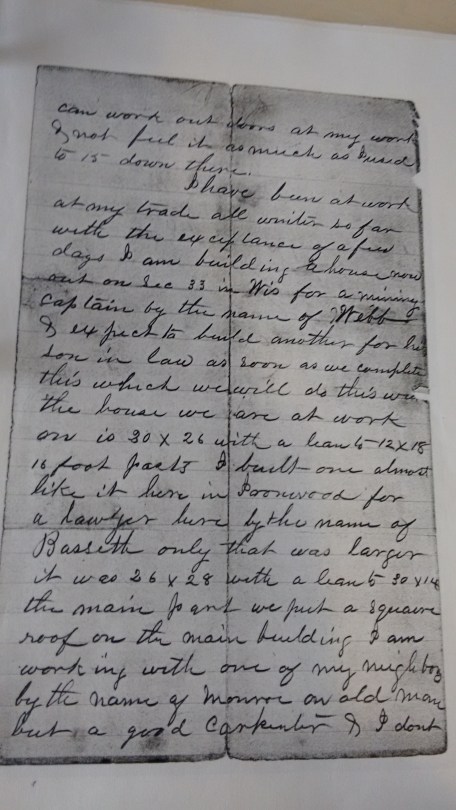 can work out doors at my work
& not feel it as much as I used
to 15 down there.
I have been at work
at my trade all winter so far
with the exceptance of a few
days I am building a house now
out on Sec 33 in Wis for a mining
captain by the name of Webb
& expect to build another for his
son in law as soon as we complete
this which we will do this
the house we are at work
on is 30 x 26 with a lean to 12 x 18
16 foot I built one almost
like it here in Ironwood for
a Lawyer here by the name of
Bassett only that was larger
it was 26 x 28 with a lean to
the main part we put a square
roof on the main building I am
working with one of my neighbors
by the name of Monroe an old man
but a good carpenter & I dont